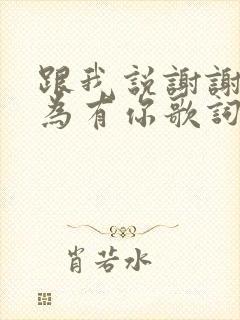 跟我說謝謝
為有你歌詞
肖若水